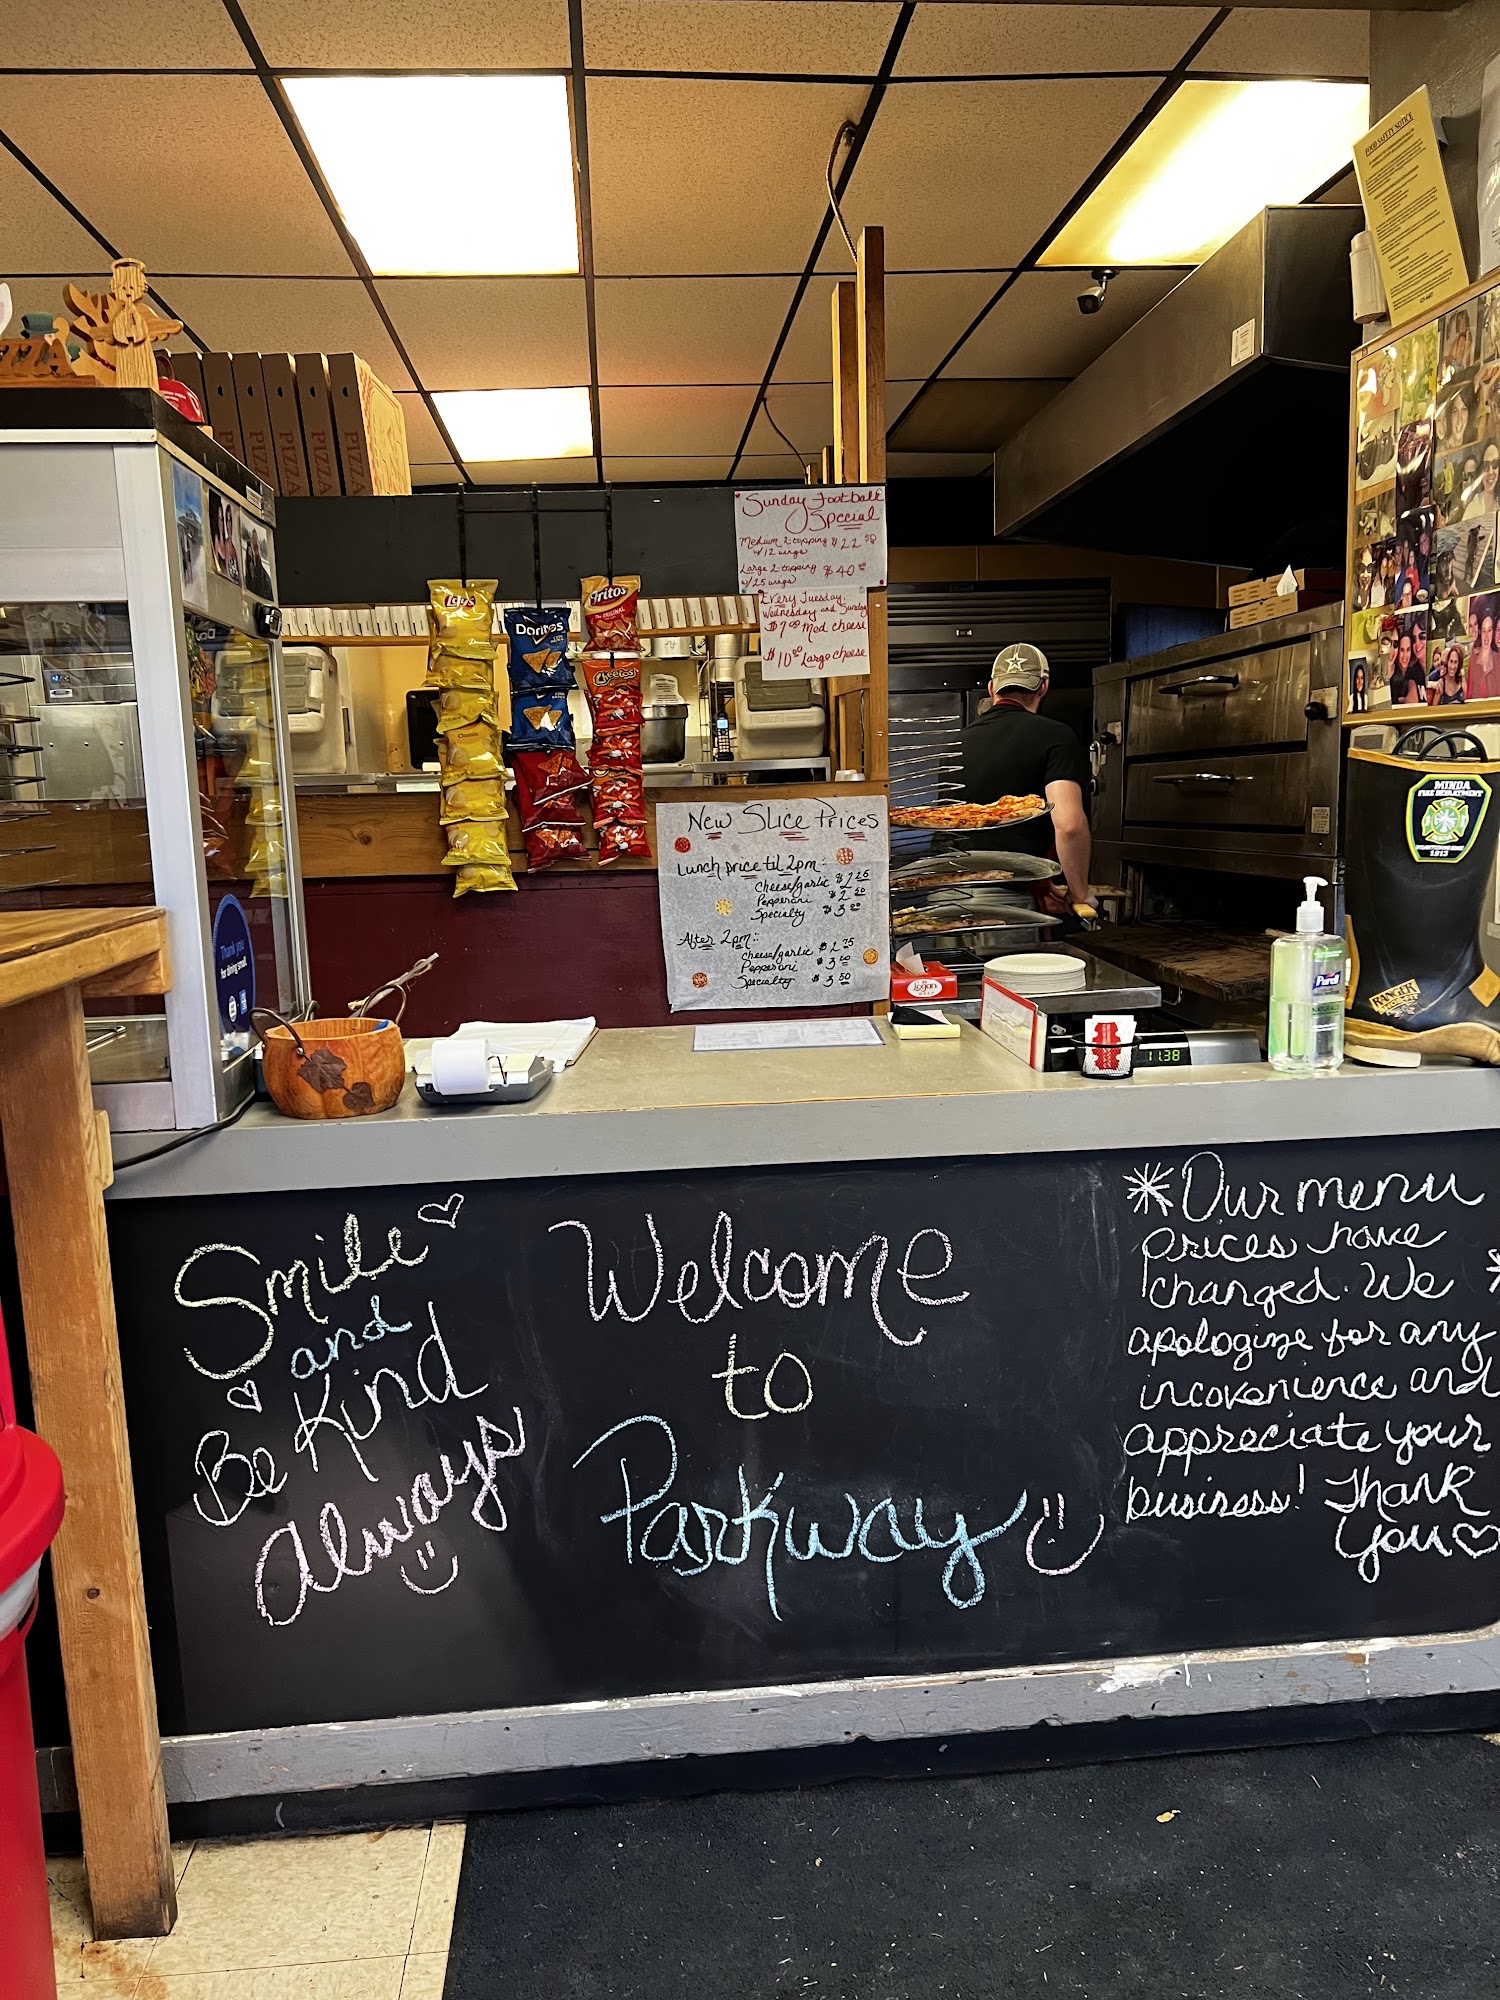 FOOD SAFETY NOTICE
PIZZA
PIZZA
PIZZA
Sunday Football
Special
Medium 2 topping $22.50
w/12 wings
Large 2-topping $40.00
w/25 wings
Every Tuesday,
Wednesday and Sunday
$7.00 Med cheese
$10.00 Large cheese
Lay's
Classic
Doritos
Fritos
ORIGINAL
Cheetos
New Slice Prices
Lunch price til 2pm:
Cheese/garlic $2.25
Pepperoni $2.50
Specialty $3.00
After 2pm:
Cheese/garlic $2.75
Pepperoni $3.00
Specialty $3.50
MINOA
FIRE DEPARTMENT
1913
RANGER
Thank you
for dining small.
Logan
Purell
11:38
Smile
and
Be Kind
Always
Welcome
to
Parkway
Our menu
prices have
changed. We
apologize for any
incovenience and
appreciate your
business! Thank
you